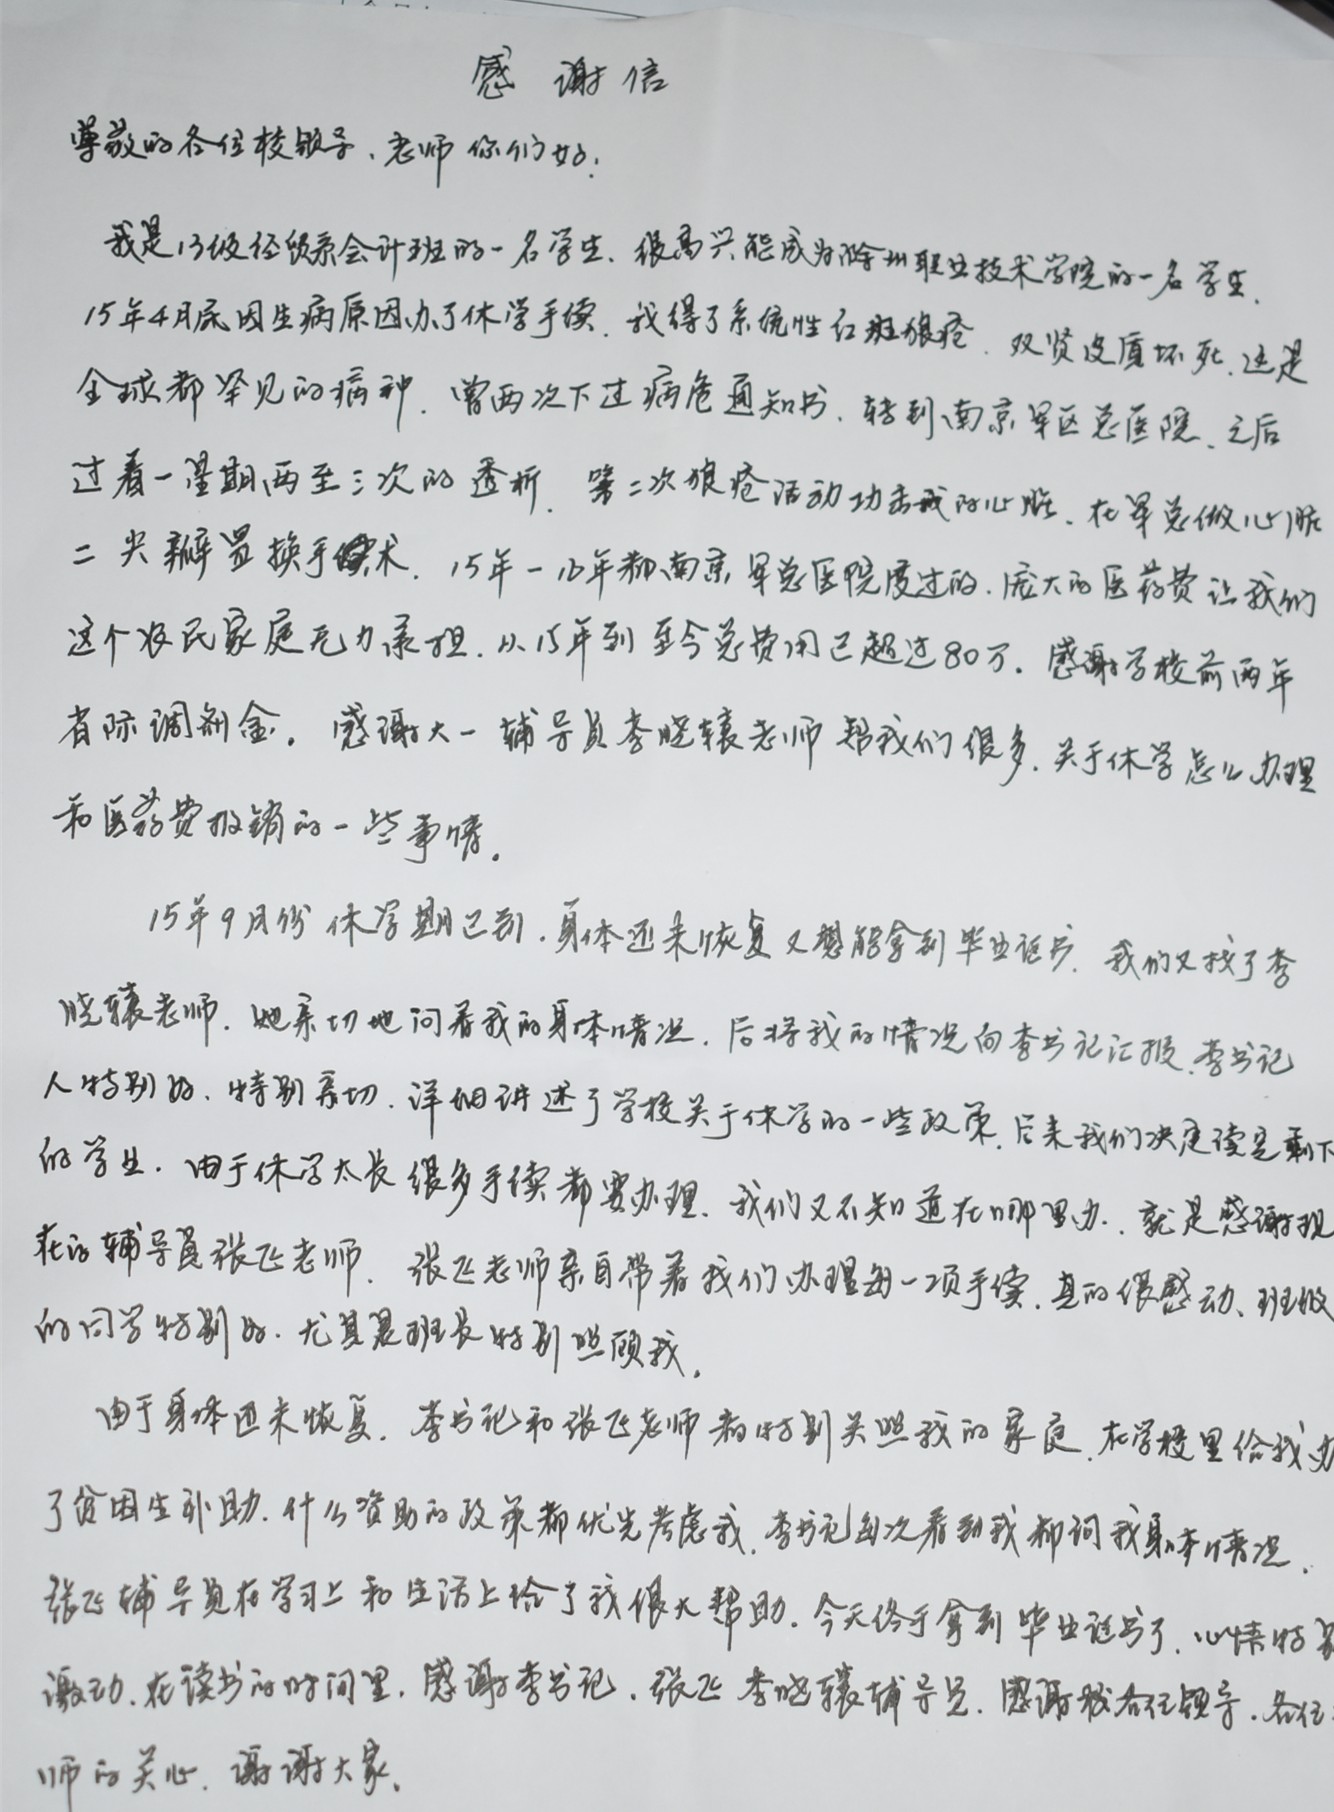 感谢信
尊敬的各位校领导、老师你们好:
我是13级经贸系会计班的一名学生、很高兴能成为滁州职业技术学院的一名学生、
15年4月底因生病原因办了休学手续、我得了系统性红斑狼疮、双肾皮质坏死、这是
全球都罕见的病种、曾两次下过病危通知书、转到南京军区总医院、之后
过着一星期两至三次的透析、第二次狼疮活动功击我的心脏、在军总做心脏
二尖瓣置换手术、15年-16年都南京军总医院度过的、庞大的医药费让我们
这个农民家庭无力承担、从15年到至今总费用已超过80万。感谢学校前两年
省际调剂金。感谢大一辅导员李晓辕老师帮我们很多、关于休学怎么办理
和医药费报销的一些事情。
15年9月份休学期已到、身体还未恢复又想能拿到毕业证书、我们又找了李
晓辕老师、她亲切地问着我的身体情况、后将我的情况向李书记汇报、李书记
人特别好、特别亲切、详细讲述了学校关于休学的一些政策、后来我们决定读完剩下
的学业、由于休学太长很多手续都要办理、我们又不知道在哪里办、就是感谢现
在的辅导员张飞老师、张飞老师亲自带着我们办理每一项手续、真的很感动、班级
的同学特别好、尤其是班长特别照顾我。
由于身体还未恢复、李书记和张飞老师都特别关照我的家庭、在学校里给我办
了贫困生补助、什么资助的政策都优先考虑我、李书记每次看到我都问我身体情况、
张飞辅导员在学习上和生活上给了我很大帮助、今天终于拿到毕业证书了、心情特别
激动、在读书的时间里、感谢李书记、张飞李晓辕辅导员、感谢我各位领导、各位
师的关心、谢谢大家。